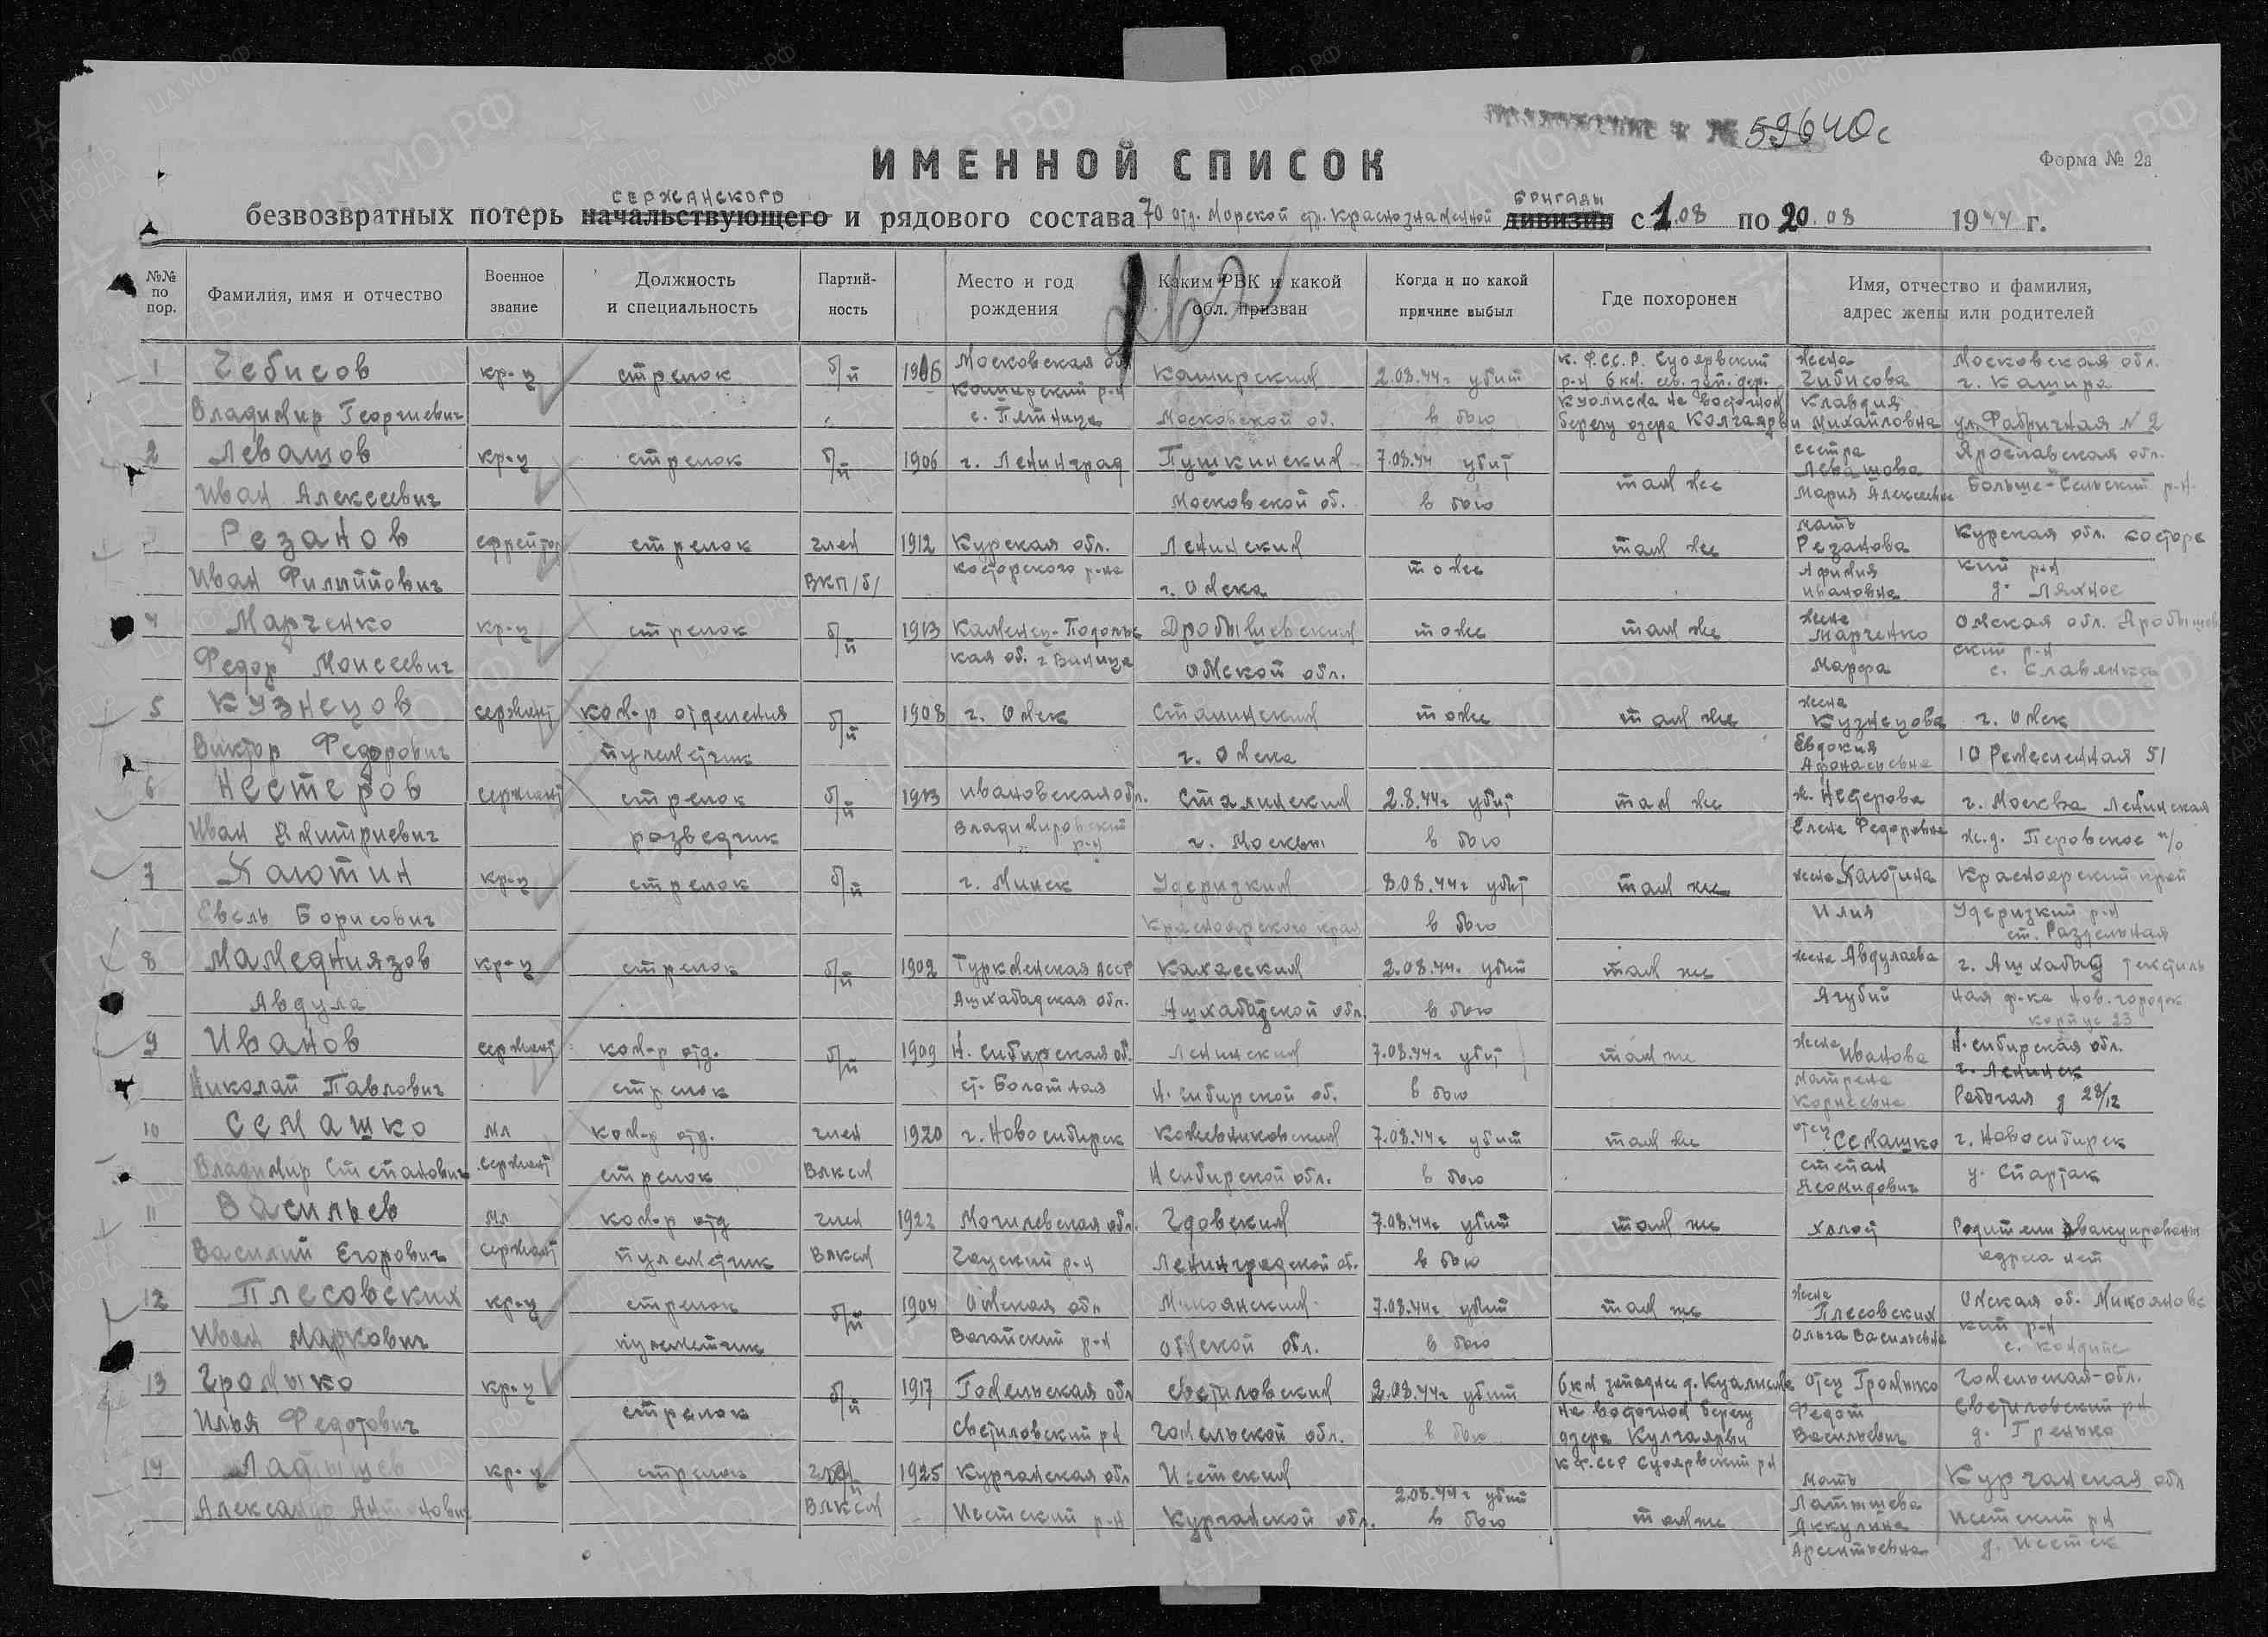 59640с
ИМЕННОЙ СПИСОК
Форма № 2а
сержанского бригады
безвозвратных потерь начальствующего и рядового состава 70 отд. Морской стр. Краснознаменной дивизии с 1.08 по 20.08 1944 г.
№№ по пор. Фамилия, имя и отчество Военное звание Должность и специальность Партийность Место и год рождения Каким РВК и какой обл. призван Когда и по какой причине выбыл Где похоронен Имя, отчество и фамилия, адрес жены или родителей
1 Чебисов кр-ц стрелок б/п 1906 Московская об Каширский 2.08.44г убит К.Ф.ССР. Суоярвский жена Московская обл.
Каширский р-н р-н 6 км. сев. зап. дер. Чибисова г. Кашира
Владимир Георгиевич с. Пятница Московской об. в бою Куолисма на восточном Клавдия
берегу озера Колгаярви Михайловна ул. Фабричная N 2
2 Левашов кр-ц стрелок б/п 1906 г. Ленинград Пушкинский 7.08.44 убит там же сестра Левашова Ярославская обл.
Иван Алексеевич Московской об. в бою Мария Алексеевна Больше-Сельский р-н
Резанов ефрейтор стрелок член 1912 Курская обл. Ленинский тоже там же мать Резанова Курская обл. касторс
Иван Филиппович ВКП/б/ касторского р-на г. Омска Афимия кий р-н
Ивановна д. Ляхное
4 Марченко кр-ц стрелок б/п 1913 Каменец-Подольс Дробышевский тоже там же жена Марченко Омская обл. Дробышев
Федор Моисеевич кая об. г Виница Омской обл. Марфа ский р-н
с. Славянка
5 Кузнецов сержант ком-р отделения б/п 1908 г. Омск Сталинский тоже там же жена Кузнецова г. Омск
Виктор Федорович пулеметчик г. Омска Евдокия Афонасьевна 10 Ремеслен­ная 51
6 Нестеров сержант стрелок б/п 1913 Ивановская обл. Сталинский 2.8.44г убит там же ж. Нестерова г. Москва Ленинская
Иван Дмитриевич разведчик Владимировский р-н г. Москвы в бою Елена Федоровна ж.д. Перовское п/о
7 Каютин кр-ц стрелок б/п г. Минск Удеризкий 8.08.44г убит там же жена Каютина Красноярский край
Евель Борисович Красноярского края в бою Илия Удеризкий р-н
ст. Раздельная
8 Мамедниязов кр-ц стрелок б/п 1902 Туркменская АССР Кахасский 2.08.44г. убит там же жена Авдулаева г. Ашхабад текстиль
Авдула Ашхабадская обл. Ашхабадской обл. в бою Ягубий ная ф-ка нов. городок
корпус 23
9 Иванов сержант ком-р отд. б/п 1909 Н. Сибирская об. Ленинский 7.08.44г убит там же жена Иванова Н. сибирская обл.
г. Ленинск
Николай Павлович стрелок ст. Болотная Н. Сибирской об. в бою Матрена Корнеевна Рабочая д 28/12
10 Семашко мл ком-р отд. член 1920 г. Новосибирск Кожевниковский 7.08.44г убит там же отец Семашко г. Новосибирск
Владимир Степанович сержант стрелок Влксм Н сибирской обл. в бою Степан Леонидович у. Спартак
11 Васильев мл ком-р отд член 1922 Могилевская обл. Гдовский 7.08.44г убит там же холост Родители эвакуированы
Василий Егорович сержант пулеметчик Влксм Чаусский р-н Ленинградской об. в бою адреса нет
12 Плесовских кр-ц стрелок б/п 1904 Омская обл Микоянский 7.08.44г убит там же жена Плесовских Омская об. Микояновс
Иван Маркович пулеметчик Вагайский р-н Омской обл. в бою Ольга Васильевна кий р-н
с. Кондинс
13 Громыко кр-ц стрелок б/п 1917 Гомельская обл Светиловский 2.08.44г убит 6 км западнее д. Куалисма отец Громыко Гомельская-обл.
Илья Федотович Светиловский рн Гомельской обл. в бою на восточном берегу Федот Светиловский рн
озера Кулгаярви Васильевич д. Гренько
К.Ф.ССР Суоярвский рн
14 Ладыщев кр-ц стрелок член 1925 Курганская обл Исетский 2.08.44г убит мать Курганская обл
Александр Антонович Влксм Исетский р-н Курганской обл. в бою там же Латышева Аккулина Исетский рн
Арсентьевна д. Исетск